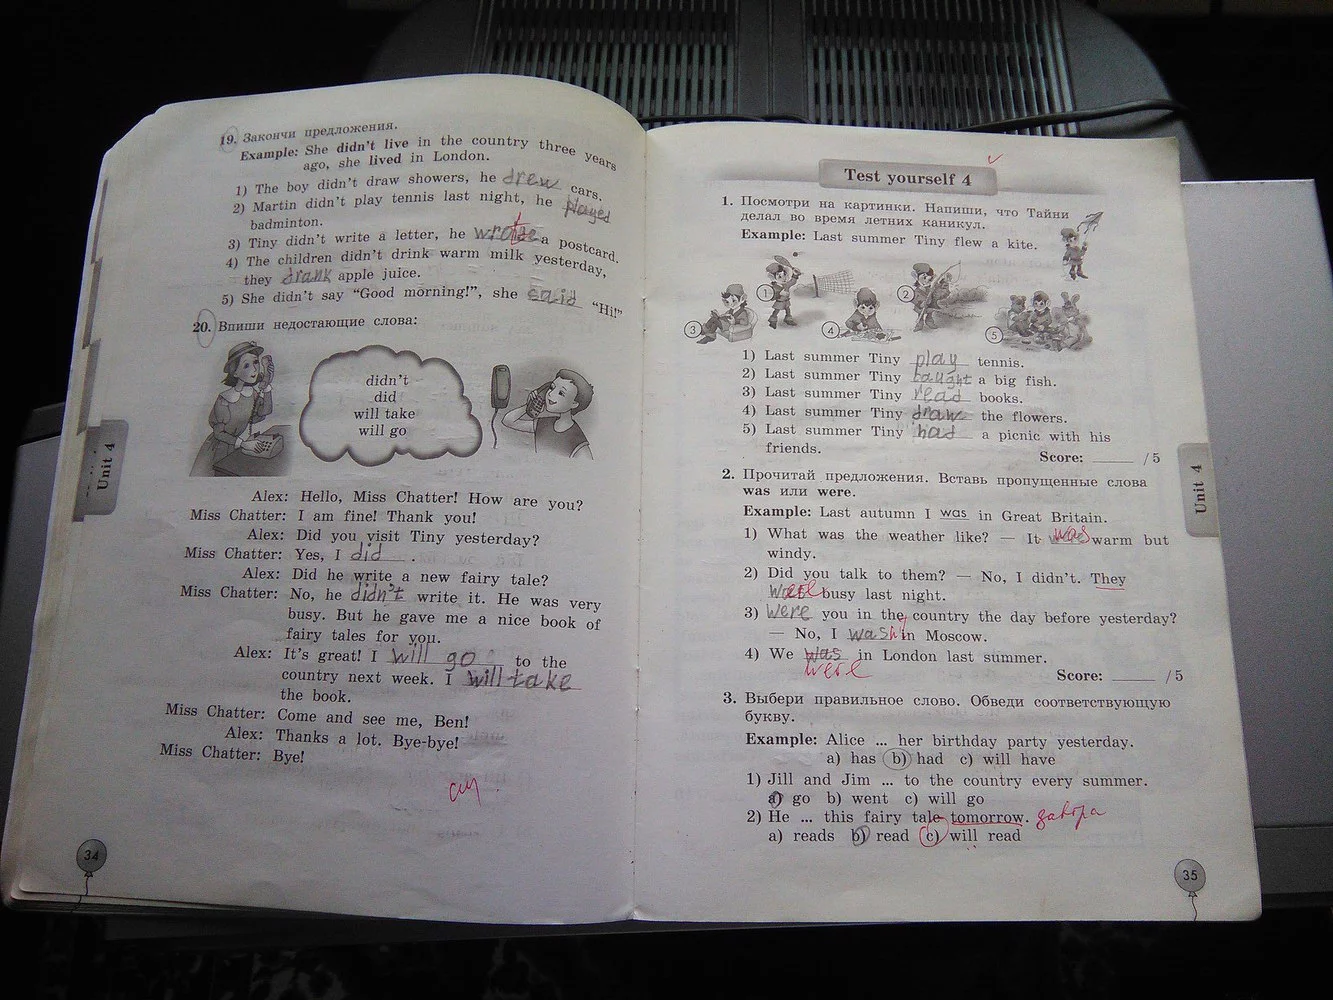 19. Закончи предложения.
Example: She didn't live in the country three years
ago, she lived in London.
1) The boy didn't draw showers, he drew cars.
2) Martin didn't play tennis last night, he played
badminton.
3) Tiny didn't write a letter, he wrote a postcard.
4) The children didn't drink warm milk yesterday,
they drank apple juice.
5) She didn't say "Good morning!", she said "Hi!"
20. Впиши недостающие слова:
didn't
did
will take
will go
Alex: Hello, Miss Chatter! How are you?
Miss Chatter: I am fine! Thank you!
Alex: Did you visit Tiny yesterday?
Miss Chatter: Yes, I did .
Alex: Did he write a new fairy tale?
Miss Chatter: No, he didn't write it. He was very
busy. But he gave me a nice book of
fairy tales for you.
Alex: It's great! I will go to the
country next week. I will take
the book.
Miss Chatter: Come and see me, Ben!
Alex: Thanks a lot. Bye-bye!
Miss Chatter: Bye!
Unit 4
34
Test yourself 4
1. Посмотри на картинки. Напиши, что Тайни
делал во время летних каникул.
Example: Last summer Tiny flew a kite.
1
2
3
4
5
1) Last summer Tiny play tennis.
2) Last summer Tiny caught a big fish.
3) Last summer Tiny read books.
4) Last summer Tiny draw the flowers.
5) Last summer Tiny had a picnic with his
friends.
Score: /5
2. Прочитай предложения. Вставь пропущенные слова
was или were.
Example: Last autumn I was in Great Britain.
1) What was the weather like? — It was warm but
windy.
2) Did you talk to them? — No, I didn't. They
were busy last night.
3) Were you in the country the day before yesterday?
— No, I was in Moscow.
4) We was in London last summer.
were
Score: /5
3. Выбери правильное слово. Обведи соответствующую
букву.
Example: Alice ... her birthday party yesterday.
a) has b) had c) will have
1) Jill and Jim ... to the country every summer.
a) go b) went c) will go
2) He ... this fairy tale tomorrow. завтра
a) reads b) read c) will read
Unit 4
35